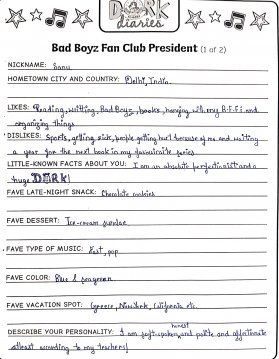 DORK
diaries
Bad Boyz Fan Club President (1 of 2)
NICKNAME: Sanu
HOMETOWN CITY AND COUNTRY: Delhi, India.
LIKES: Reading, writting, Bad Boyz, books, hanging with my B.F.F.s and
organizing things
DISLIKES: Sports, getting sick, people getting hurt because of me and waiting
a year for the next book in my favourite series
LITTLE-KNOWN FACTS ABOUT YOU: I am an absolute perfectionist and a
huge DORK!
FAVE LATE-NIGHT SNACK: Chocolate cookies
FAVE DESSERT: Ice-cream sundae
FAVE TYPE OF MUSIC: Fast, pop
FAVE COLOR: Blue & seagreen
FAVE VACATION SPOT: Greece, New York, California etc.
honest
DESCRIBE YOUR PERSONALITY: I am soft-spoken, and polite and affectionate
atleast according to my teachers!